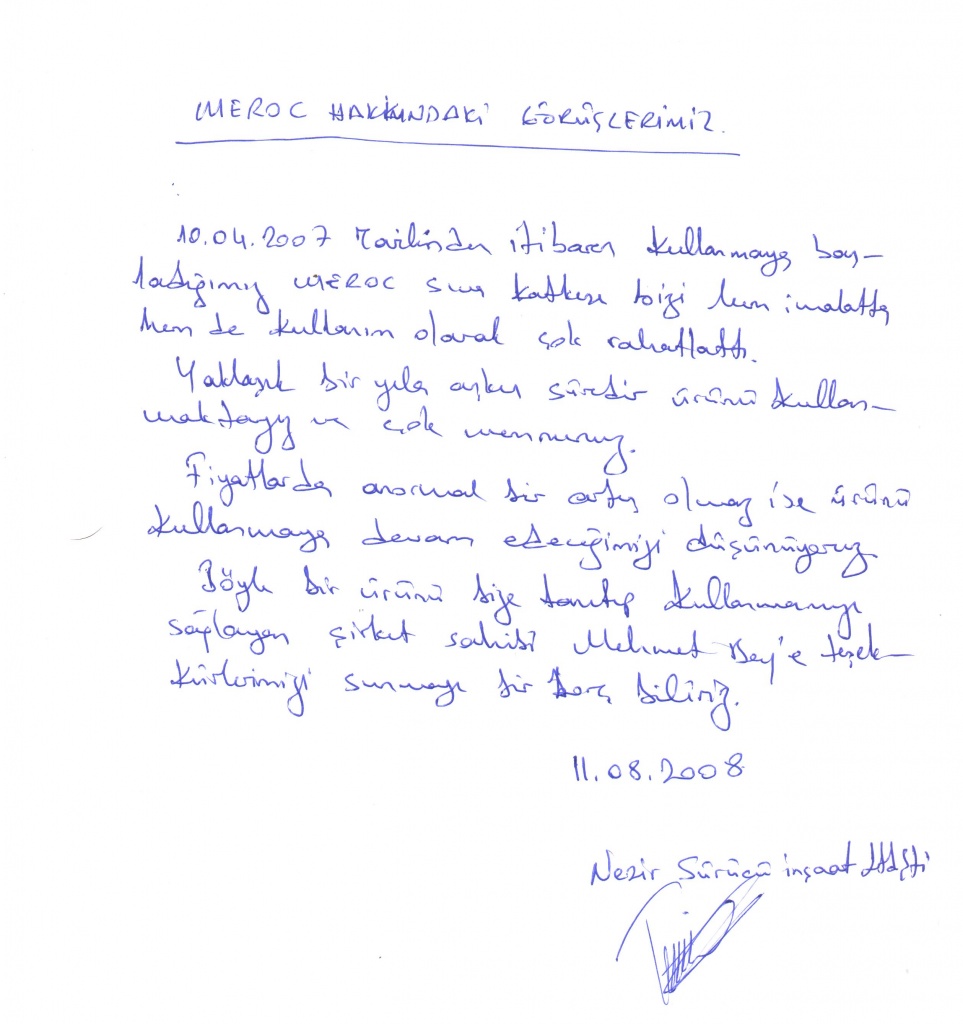 MEROC HAKKINDAKİ GÖRÜŞLERİMİZ.
10.04.2007 Tarihinden itibaren kullanmaya baş-
ladığımız MEROC sıva katkısı bizi hem imalatta
hem de kullanım olarak çok rahatlattı.
Yaklaşık bir yılı aşkın süredir ürünü kullan-
maktayız ve çok memnunuz.
Fiyatlarda anormal bir artış olmaz ise ürünü
kullanmaya devam edeceğimizi düşünüyoruz
Böyle bir ürünü bize tanıtıp kullanmamızı
sağlayan şirket sahibi Mehmet Bey'e teşek-
kürlerimizi sunmayı bir borç biliriz.
11.08.2008
Nezir Sürücü inşaat Ltd Şti